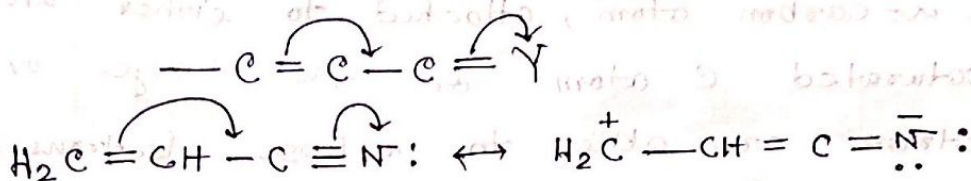 — C = C — C = Y
H₂C = CH — C ≡ N: ↔ H₂C⁺ — CH = C = N̄: